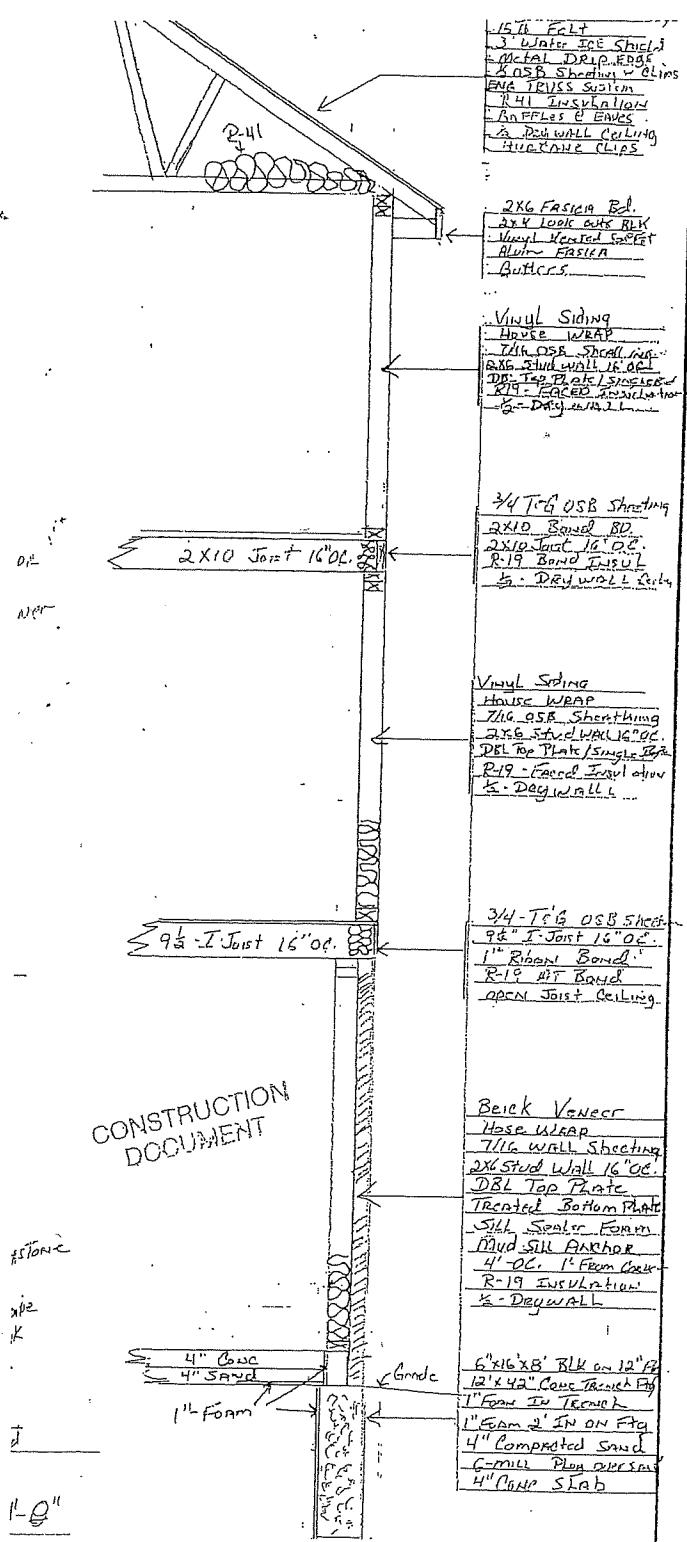 15 lb FELT
3' Water ICE Shield
METAL DRIP EDGE
OSB Sheeting w CLIPS
ENG TRUSS System
R-41 INSULATION
BAFFLES @ EAVES
½ DRYWALL CEILING
HURICANE CLIPS
R-41
2X6 FASICIA Bd.
2x4 LOOK OUTS BLK
VINYL Vented Soffit
ALUM FASICIA
Gutters
VINYL SIDING
HOUSE WRAP
7/16 OSB Sheathing
2X6 STUD WALL 16" OC
DBL Top PLATE / SINGLE
R19 - FACED Insulation
½ - DRYWALL
3/4 T&G OSB Sheeting
2X10 BOND BD.
2X10 Joist 16" OC.
R-19 BOND INSUL
½ - DRYWALL
2X10 Joist 16" OC.
VINYL SIDING
HOUSE WRAP
7/16 OSB Sheathing
2X6 Stud WALL 16" OC.
DBL Top PLATE / SINGLE
R-19 - Faced Insulation
½ - DRYWALL
3/4 - T&G OSB Sheet
9½" I-Joist 16" OC.
1" Riban Bond
R-19 AT Bond
OPEN Joist Ceiling
9½ - I-Joist 16" OC.
CONSTRUCTION
DOCUMENT
Brick Veneer
Hose WRAP
7/16 WALL Sheeting
2X6 Stud Wall 16" OC.
DBL TOP PLATE
Treated Bottom PLATE
SILL Sealer FOAM
Mud SILL ANCHOR
4'-OC. 1' From
R-19 INSULATION
½ - DRYWALL
4" CONC
4" SAND
1"-FOAM
Grade
6"x16"x8" BLK ON 12"
12" x 42" CONC TRENCH Ftg
1" FOAM IN TRENCH
1" FOAM 2' IN ON Ftg
4" COMPACTED SAND
6-MILL
4" CONC SLAB
1'-0"